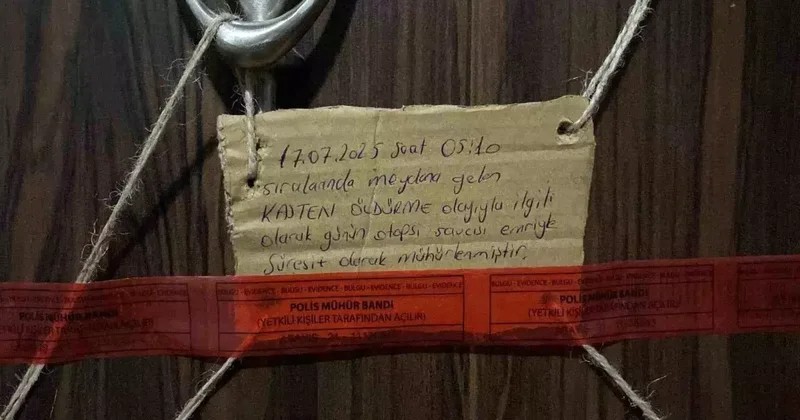 17.07.2025 Saat 05:10
sıralarında meydana gelen
KASTEN ÖLDÜRME olayıyla ilgili
olarak günün otopsi savcısı emriyle
Süresiz olarak mühürlenmiştir.
BULGU - EVIDENCE - BULGU - EVIDENCE - BULGU - EVIDENCE
POLİS MÜHÜR BANDI
(YETKİLİ KİŞİLER TARAFINDAN AÇILIR)
POLİS MÜHÜR BANDI
(YETKİLİ KİŞİLER TARAFINDAN AÇILIR)
BULGU - EVIDENCE - BULGU - EVIDENCE - BULGU - EVIDENCE
POLİS MÜHÜR BANDI
(YETKİLİ KİŞİLER TARAFINDAN AÇILIR)